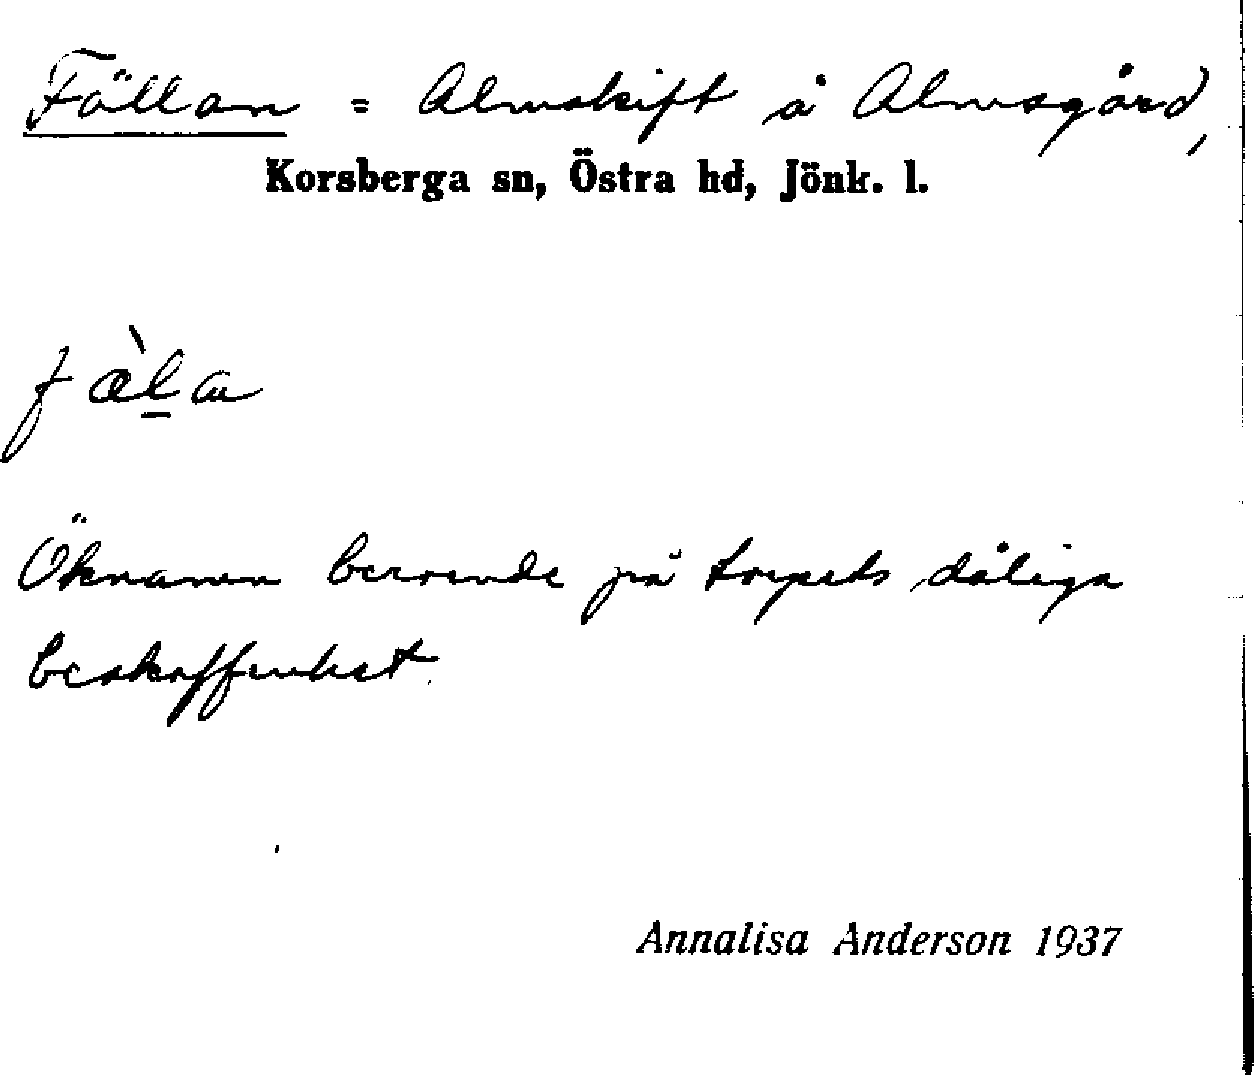 Fällan = Almskift å Almsgård,
Korsberga sn, Östra hd, Jönk. l.
fæ̀l̠a
Öknamn beroende på torpets dåliga
beskaffenhet.
Annalisa Anderson 1937